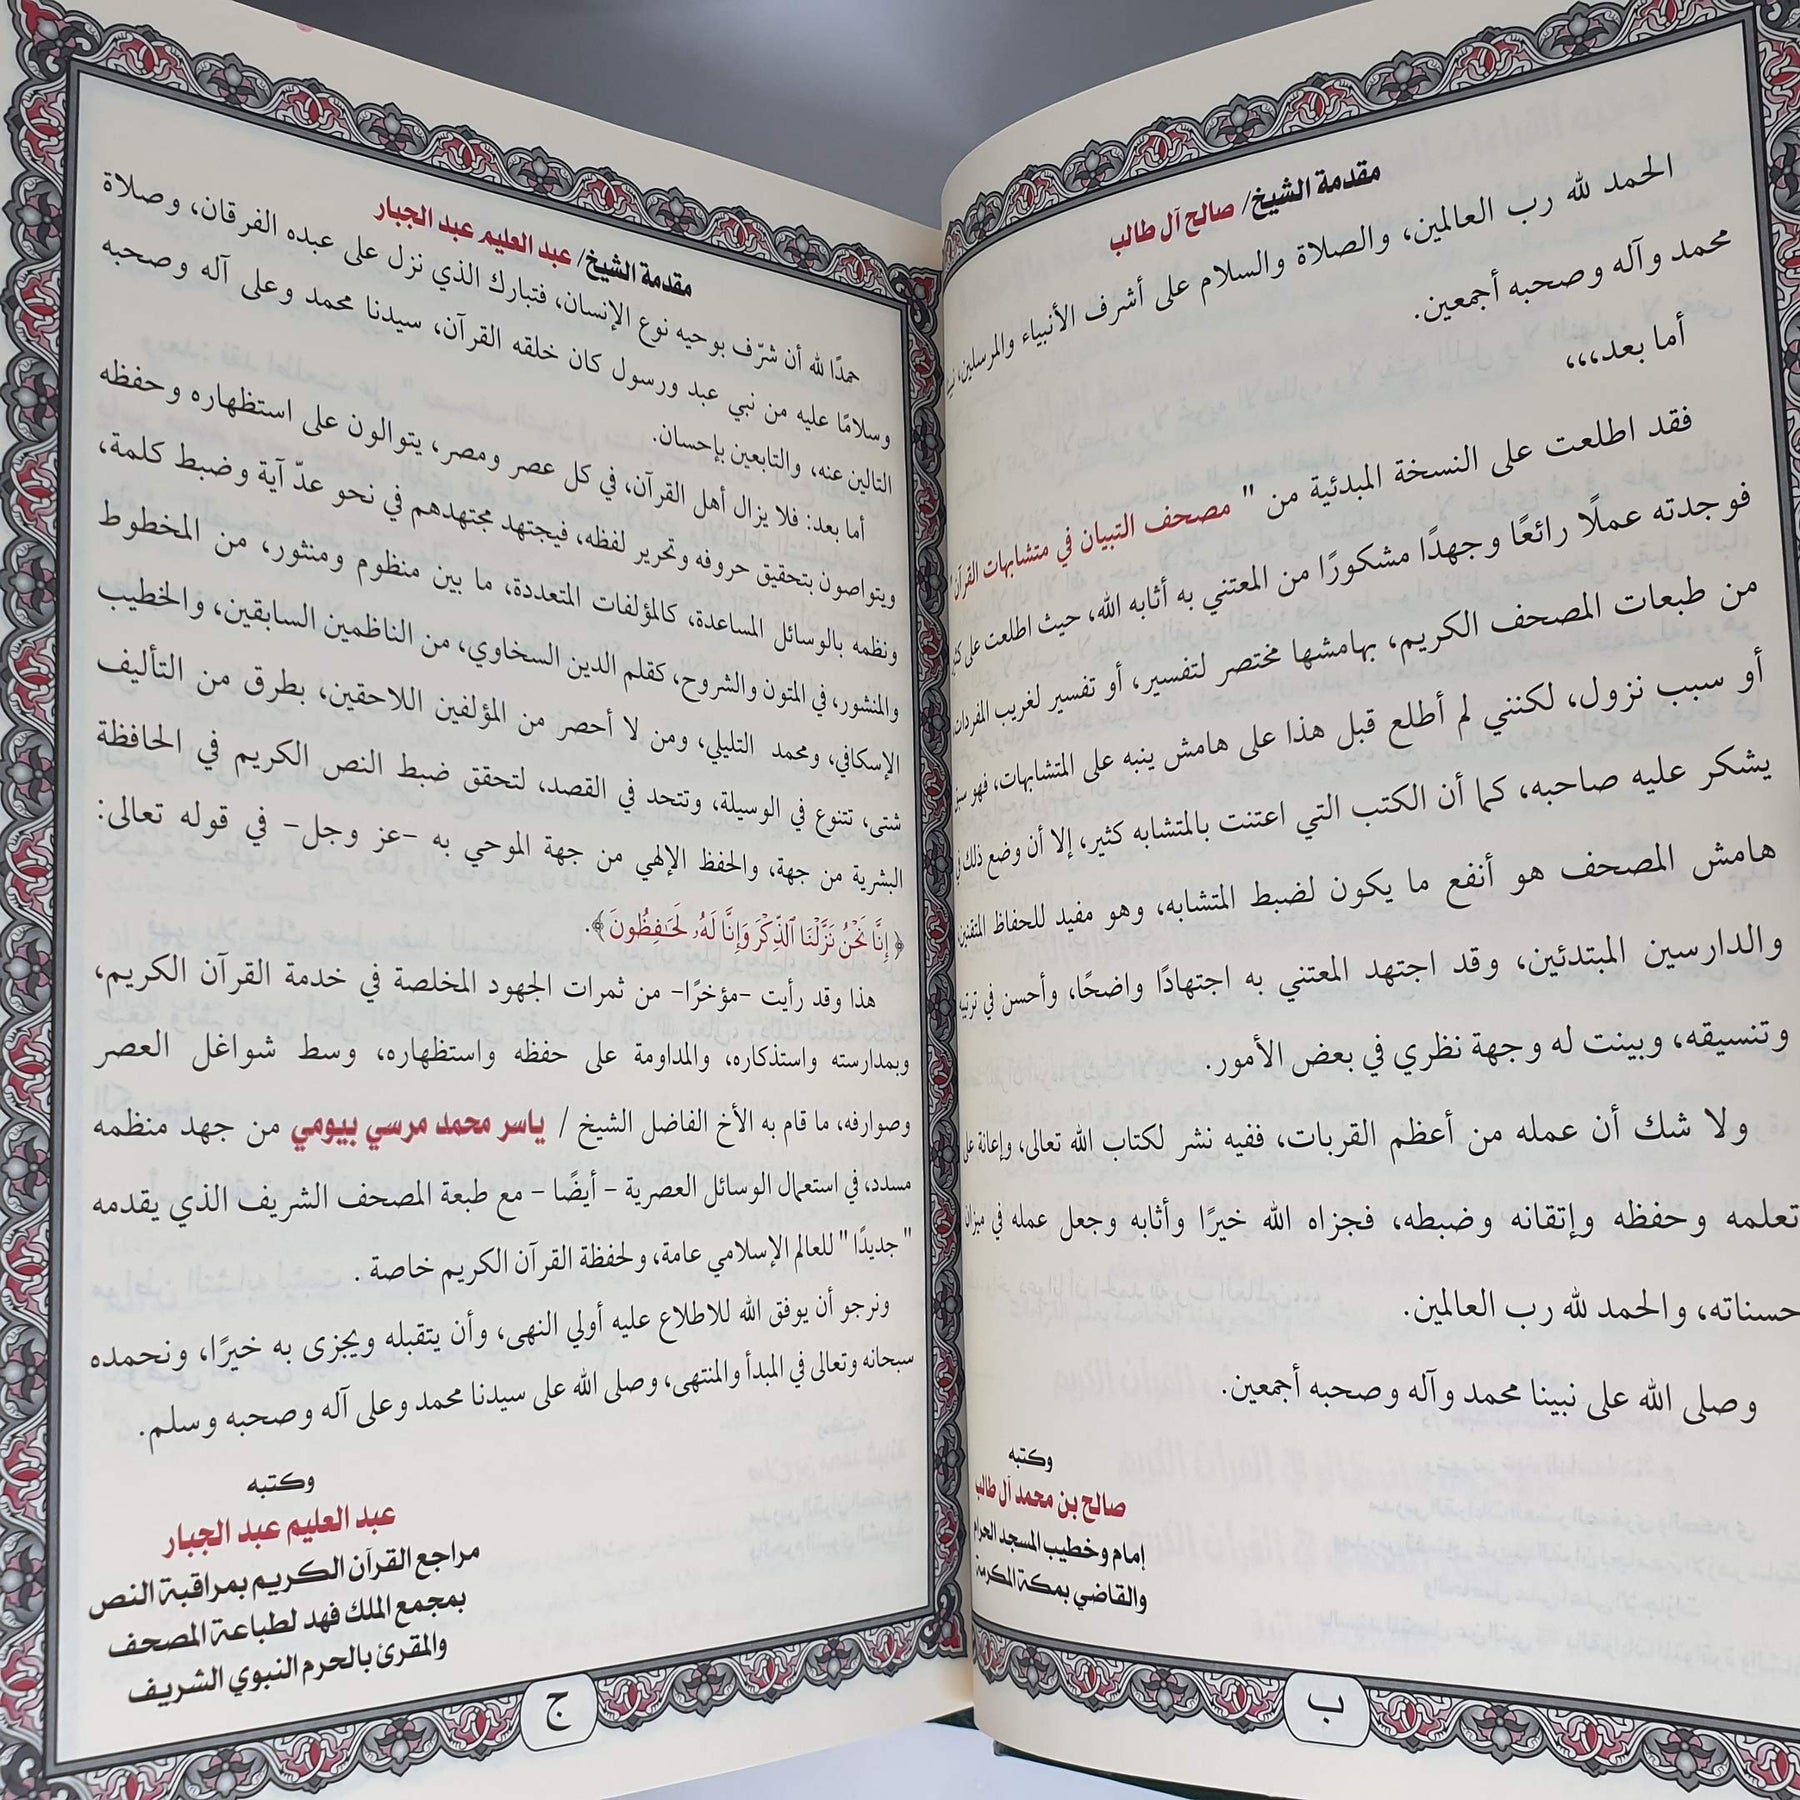 مقدمة الشيخ/ صالح آل طالب
الحمد لله رب العالمين، والصلاة والسلام على أشرف الأنبياء والمرسلين،
محمد وآله وصحبه أجمعين.
أما بعد،،،
فقد اطلعت على النسخة المبدئية من " مصحف التبيان في متشابهات القرآن"
فوجدته عملًا رائعًا وجهدًا مشكورًا من المعتني به أثابه الله، حيث اطلعت على
من طبعات المصحف الكريم، بهامشها مختصر لتفسير، أو تفسير لغريب المفردات
أو سبب نزول، لكنني لم أطلع قبل هذا على هامش ينبه على المتشابهات، فهو
يشكر عليه صاحبه، كما أن الكتب التي اعتنت بالمتشابه كثير، إلا أن وضع ذلك في
هامش المصحف هو أنفع ما يكون لضبط المتشابه، وهو مفيد للحفاظ المتقنين
والدارسين المبتدئين، وقد اجتهد المعتني به اجتهادًا واضحًا، وأحسن في
وتنسيقه، وبينت له وجهة نظري في بعض الأمور.
ولا شك أن عمله من أعظم القربات، ففيه نشر لكتاب الله تعالى، وإعانة على
تعلمه وحفظه وإتقانه وضبطه، فجزاه الله خيرًا وأثابه وجعل عمله في ميزان
حسناته، والحمد لله رب العالمين.
وصلى الله على نبينا محمد وآله وصحبه أجمعين.
وكتبه
صالح بن محمد آل طالب
إمام وخطيب المسجد الحرام
والقاضي بمكة المكرمة
ب
مقدمة الشيخ/ عبد العليم عبد الجبار
حمدًا لله أن شرّف بوحيه نوع الإنسان، فتبارك الذي نزل على عبده الفرقان، وصلاة
وسلامًا عليه من نبي عبد ورسول كان خلقه القرآن، سيدنا محمد وعلى آله وصحبه
التالين عنه، والتابعين بإحسان.
أما بعد: فلا يزال أهل القرآن، في كل عصر ومصر، يتوالون على استظهاره وحفظه
ويتواصون بتحقيق حروفه وتحرير لفظه، فيجتهد مجتهدهم في نحو عدّ آية وضبط كلمة،
ونظمه بالوسائل المساعدة، كالمؤلفات المتعددة، ما بين منظوم ومنثور، من المخطوط
والمنشور، في المتون والشروح، كقلم الدين السخاوي، من الناظمين السابقين، والخطيب
الإسكافي، ومحمد التليلي، ومن لا أحصر من المؤلفين اللاحقين، بطرق من التأليف
شتى، تتنوع في الوسيلة، وتتحد في القصد، لتحقق ضبط النص الكريم في الحافظة
البشرية من جهة، والحفظ الإلهي من جهة الموحي به -عز وجل- في قوله تعالى:
﴿إِنَّا نَحْنُ نَزَّلْنَا ٱلذِّكْرَ وَإِنَّا لَهُۥ لَحَٰفِظُونَ﴾.
هذا وقد رأيت -مؤخرًا- من ثمرات الجهود المخلصة في خدمة القرآن الكريم،
وبمدارسته واستذكاره، والمداومة على حفظه واستظهاره، وسط شواغل العصر
وصوارفه، ما قام به الأخ الفاضل الشيخ / ياسر محمد مرسي بيومي من جهد منظمه
مسدد، في استعمال الوسائل العصرية - أيضًا - مع طبعة المصحف الشريف الذي يقدمه
" جديدًا " للعالم الإسلامي عامة، ولحفظة القرآن الكريم خاصة .
ونرجو أن يوفق الله للاطلاع عليه أولي النهى، وأن يتقبله ويجزى به خيرًا، ونحمده
سبحانه وتعالى في المبدأ والمنتهى، وصلى الله على سيدنا محمد وعلى آله وصحبه وسلم.
وكتبه
عبد العليم عبد الجبار
مراجع القرآن الكريم بمراقبة النص
بمجمع الملك فهد لطباعة المصحف
والمقرئ بالحرم النبوي الشريف
ج